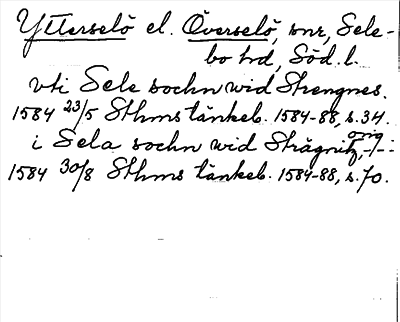 Ytterselö el. Överselö, snr, Sele-
bo hd, Söd. l.
vti Sele sochn wid Strengnes.
1584 23/5 Sthms tänkeb. 1584-88, s. 34.
i Sela sochn wid Strägnitz, orig
1584 30/8 Sthms tänkeb. 1584-88, s. 70.